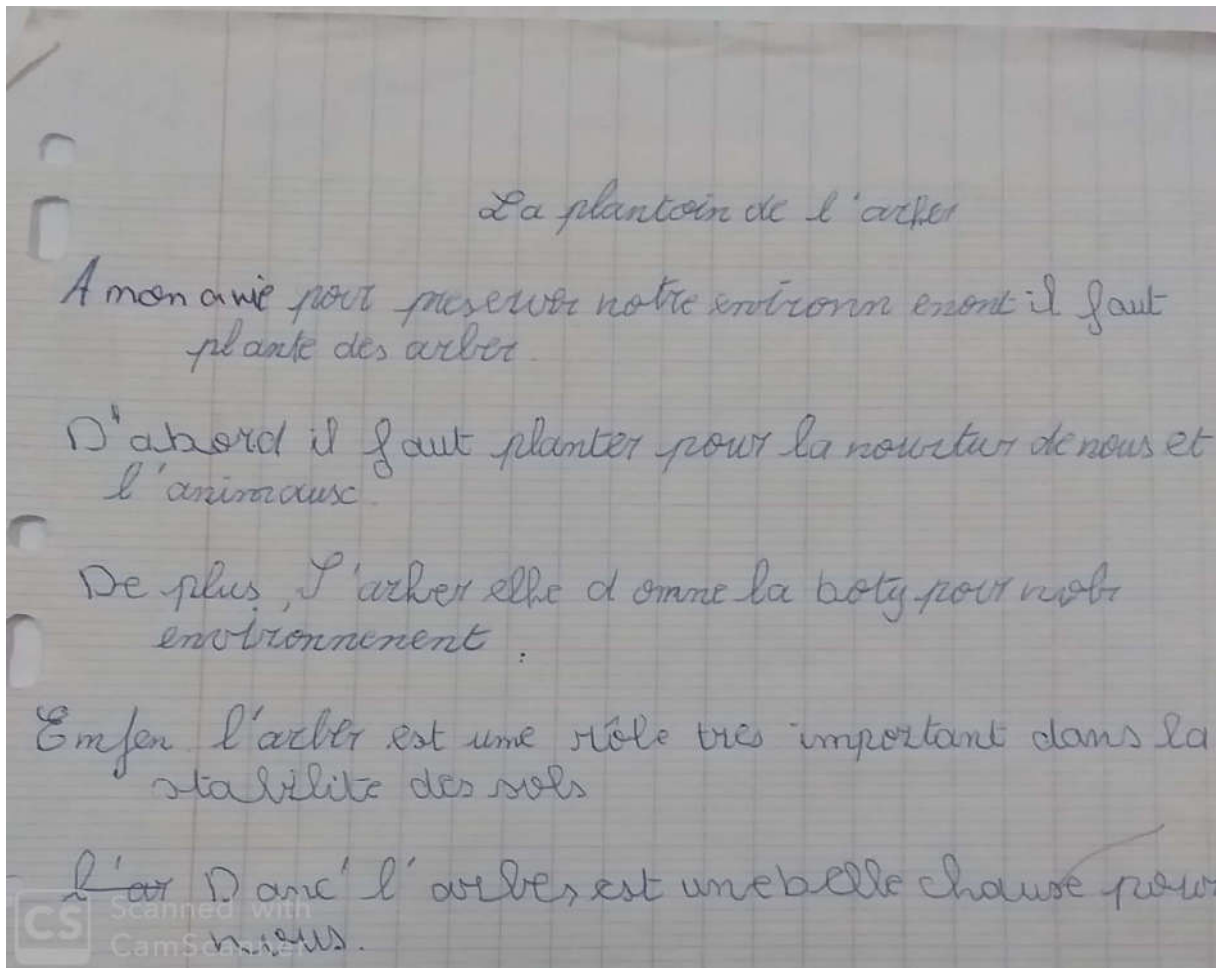 La plantoin de l'arber
A mon avie pour preserver notre environn ement il faut
plante des arber.
D'abord il faut planter pour la nourtur de nous et
l'animaux.
De plus, l'arber elle d onne la boty pour notr
environnement.
Enfen l'arber est une rôle très important dans la
stabilite des sols
l'ar Danc' l'arber, est une belle chause pour
nous.
CS Scanned with
CamScanner